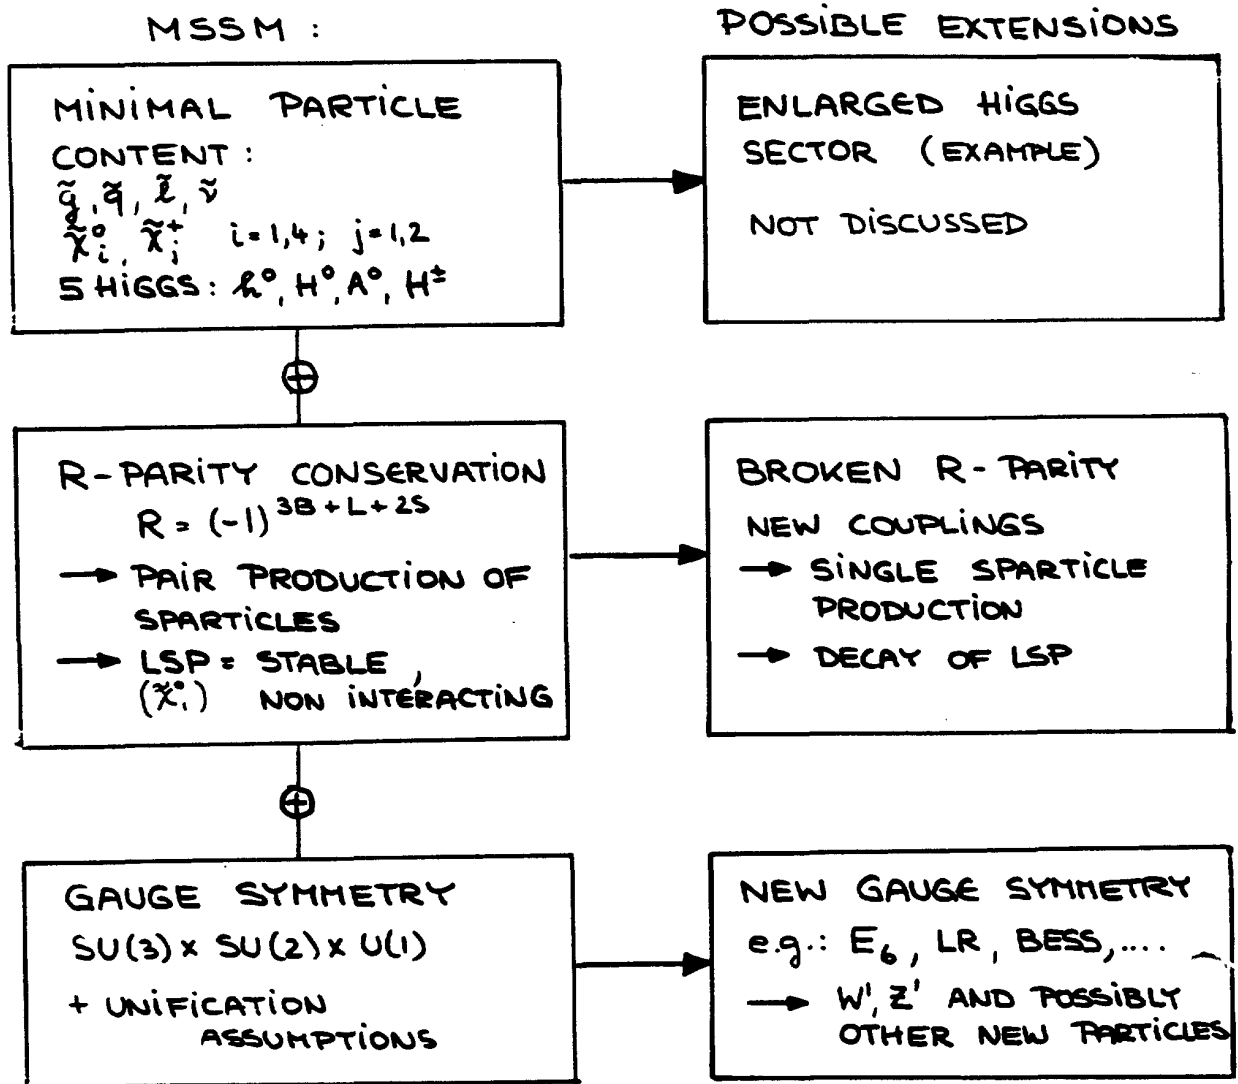 MSSM :
MINIMAL PARTICLE
CONTENT :
g̃, q̃, l̃, ν̃
χ̃ᵢ⁰, χ̃ⱼ⁺ i=1,4; j=1,2
5 HIGGS: h⁰, H⁰, A⁰, H±
⊕
R-PARITY CONSERVATION
R = (-1)^{3B+L+2S}
→ PAIR PRODUCTION OF
SPARTICLES
→ LSP = STABLE,
(χ̃₁⁰) NON INTERACTING
⊕
GAUGE SYMMETRY
SU(3) x SU(2) x U(1)
+ UNIFICATION
ASSUMPTIONS
POSSIBLE EXTENSIONS
ENLARGED HIGGS
SECTOR (EXAMPLE)
NOT DISCUSSED
BROKEN R-PARITY
NEW COUPLINGS
→ SINGLE SPARTICLE
PRODUCTION
→ DECAY OF LSP
NEW GAUGE SYMMETRY
e.g.: E₆, LR, BESS,....
→ W', Z' AND POSSIBLY
OTHER NEW PARTICLES